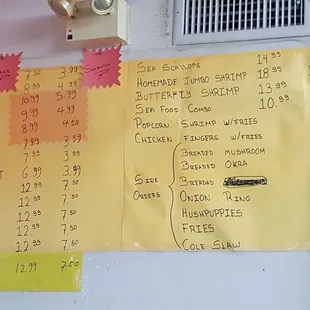 SANDWICH
7.50 3.99
8.99 4.99
10.99 5.99
9.99 4.99
8.99 4.50
7.99 3.99
7.99 3.99
6.99 3.99
12.99 7.50
12.99 7.50
12.99 7.50
12.99 7.50
12.99 7.50
12.99 7.50
SEA SCALLOPS 14.99
HOMEMADE JUMBO SHRIMP 18.99
BUTTERFLY SHRIMP 13.99
SEA FOOD COMBO 10.99
POPCORN SHRIMP W/FRIES
CHICKEN FINGERS W/FRIES
SIDE ORDERS
BREADED MUSHROOM
BREADED OKRA
BREADED
ONION RING
HUSHPUPPIES
FRIES
COLE SLAW